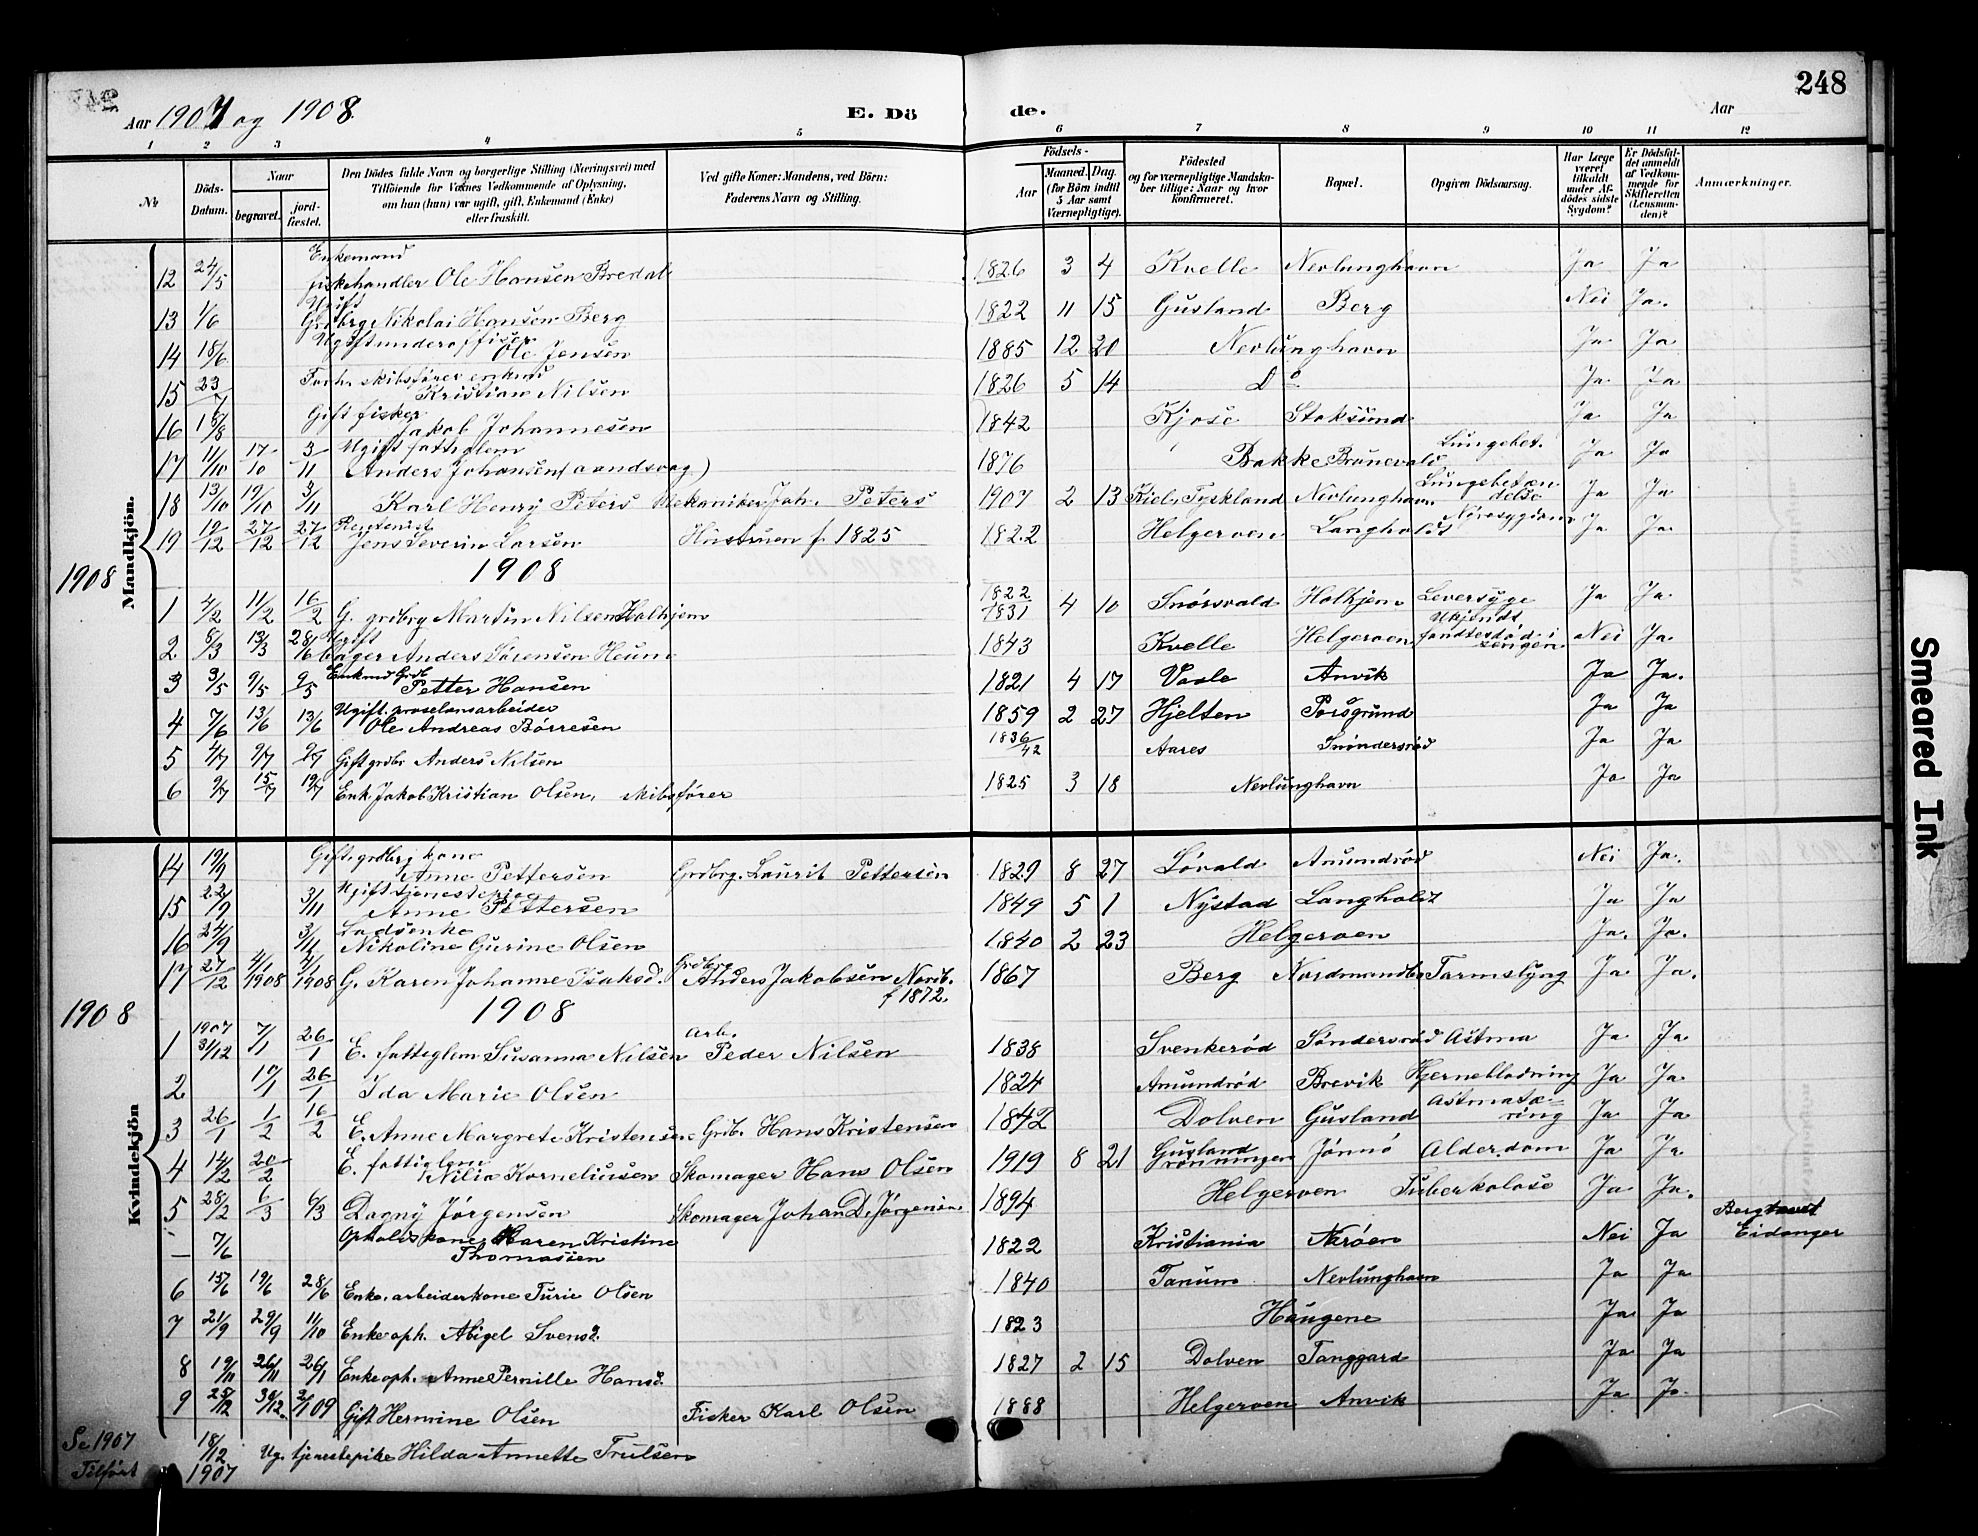 248
Aar 1907 og 1908.
E. Döde.
Aar
1 2 3 4 5 6 7 8 9 10 11 12
№
Döds-Datum.
Naar
begravet.
jord-fæstet.
Den Dödes fulde Navn og borgerlige Stilling (Næringsvei) med
Tilföiende for Voxnes Vedkommende af Oplysning,
om han (hun) var ugift, gift, Enkemand (Enke)
eller fraskilt.
Ved gifte Koner: Mandens, ved Börn:
Faderens Navn og Stilling.
Födsels-
Aar
Maaned. Dag.
(for Börn indtil
5 Aar samt
Værnepligtige).
Födested
og for værnepligtige Mandska-
ber tillige: Naar og hvor
konfirmeret.
Bopæl.
Opgiven Dödsaarsag.
Har Læge
været
tilkaldt
under Af-
dödes sidste
Sygdom?
Er Dödsfal-
det anmeldt
af Vedkom-
mende for
Skifteretten
(Lensman-
den)?
Anmærkninger.
Mandkjön.
12 24/5 Enkemand fiskehandler Ole Hansen Bredal 1826 3 4 Kvelle Nevlunghavn Ja Ja
13 1/6 Ugift Grdbrg Nikolai Hansen Berg 1822 11 15 Gusland Berg Nei Ja.
14 18/6 Ugift underoffiser Ole Jensen 1885 12 20 Nevlunghavn Ja Ja
15 23/7 Forh. skibsfører enkmd Kristian Nilsen 1826 5 14 Do Ja Ja
16 18/8 Gift fisker Jakob Johannesen 1842 Kjose Stoksund Ja Ja
17 11/10 17/10 3/11 Ugift fattiglem Anders Johansen (aandsvag) 1876 Bakke Brunevald Lungebet. Ja Ja
18 13/10 19/10 3/11 Karl Henry Peters Mekaniker Joh. Peters 1907 2 13 Kiel, Tyskland Nevlunghavn Lungebetændelse Ja Ja
19 19/12 27/12 27/12 Rentenist Jens Severin Larsen Hustruen f. 1825 1822 Helgeroen Langholdt Ja Ja.
1908
1908
1 4/2 11/2 16/2 G. grdbrg Martin Nilsen Holhjem 1822/1831 4 10 Snørsvald Holhjem Leversyge Ja Ja
2 5/3 13/3 28/6 Ugift bager Anders Sørensen Heum 1843 Kvelle Helgeroen Ukjendt fandtes død i sengen Nei Ja.
3 3/5 9/5 9/5 Enkmd Grdb. Petter Hansen 1821 4 17 Vasle Anvik Ja Ja.
4 7/6 13/6 13/6 Ugift. proselansarbeider Ole Andreas Børresen 1859 2 27 Hjelten Porsgrund Ja Ja
5 4/7 9/7 9/7 Gift grdbr Anders Nilsen 1836/42 Aares Snøndersrød Ja Ja
6 9/7 15/7 19/7 Enk. Jakob Kristian Olsen, skibsfører 1825 3 18 Nevlunghavn Ja Ja
Kvindekjön
14 19/9 Gift. grdbrg kone Anne Pettersen Grdbrg. Laurit Pettersen 1829 8 27 Løvald Amundrød Nei Ja.
15 22/9 3/11 Ugift tjenestepige Anne Pettersen 1849 5 1 Nystad Langholdt Ja Ja
16 24/9 3/11 Lodsenke Nikoline Gurine Olsen 1840 2 23 Helgeroen Ja. Ja.
17 27/12 4/1 1908 4/1 1908 G. Karen Johanne Isaksd. Grdbrg Anders Jakobsen Nordb. f 1872. 1867 Berg Nordmandbr Tarmslyng Ja Ja.
1908
1908
1 1907 31/12 7/1 26/1 E. fattiglem Susanna Nilsen arb. Peder Nilsen 1838 Svenkerød Søndersrød Astma Ja Ja
2 17/1 26/1 Ida Marie Olsen 1824 Amundrød Brevik Hjerneblødning Ja Ja.
3 26/1 1/2 16/2 E. Anne Margrete Kristensen Grdb. Hans Kristensen 1842 Dolven Gusland Astma tæring Ja Ja
4 14/2 20/2 E. fattiglem Nilia Korneliusen Skomager Hans Olsen 1919 8 21 Gusland rønningen Jømnø Alderdom Ja Ja
5 28/2 6/3 6/3 Dagny Jørgensen Skomager Johan D. Jørgensen 1894 Helgeroen Tuberkolose Ja Ja.
— 7/6 Opholdskone Karen Kristine Thomassen 1822 Kristiania Nerøen Nei Ja Begravet Eidanger
6 15/6 19/6 28/6 Enke. arbeiderkone Turie Olsen 1840 Tanum Nevlunghavn Ja Ja
7 21/9 29/9 11/10 Enke oph. Abigel Svensd. 1823 Haugene Ja Ja
8 19/11 26/11 26/1 Enke oph. Anne Pernille Hansd. 1827 2 15 Dolven Tanggard Ja Ja
9 25/12 30/12. 2/1 09 Gift Hermine Olsen Fisker Karl Olsen 1888 Helgeroen Anvik Ja Ja
Se 1907 Tilført 18/12 1907 Ug. tjenestepike Hilda Annette Trulsen
Smeared Ink